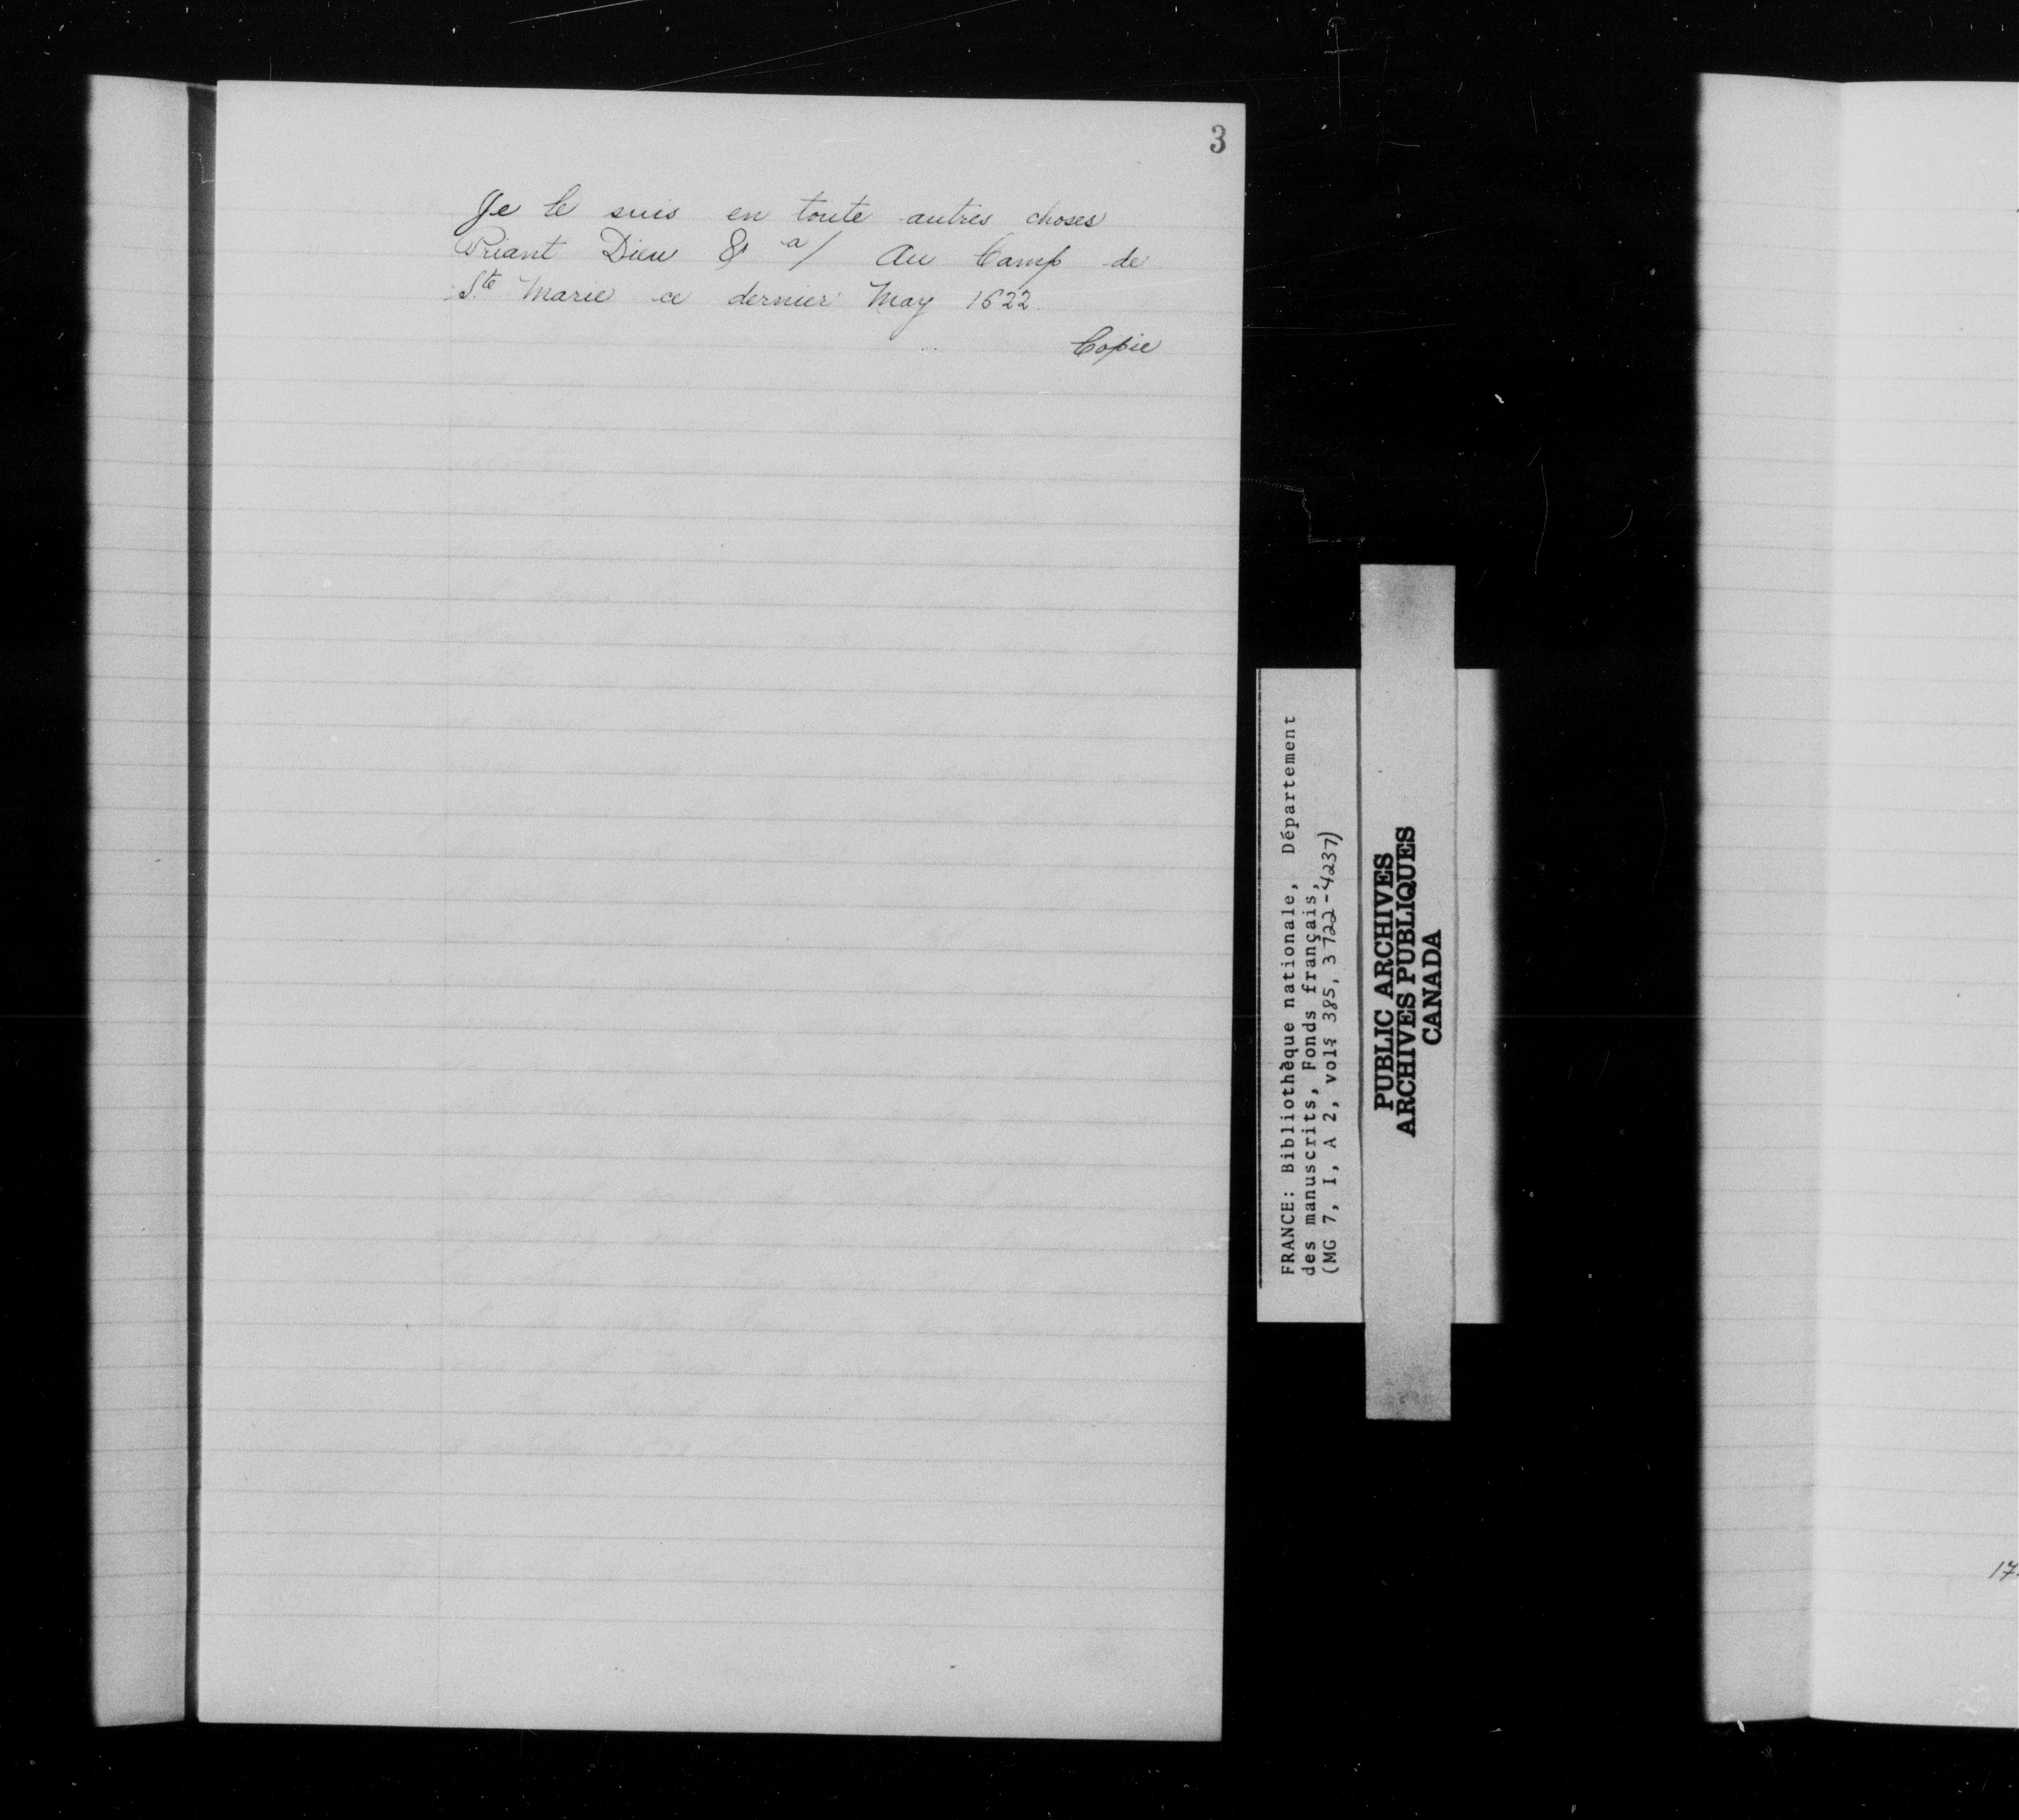 3
Je le suis en toute autres choses
Priant Dieu & a/ Au Camp de
Ste Marie ce dernier May 1622.
Copie
FRANCE: Bibliothèque nationale, Département
des manuscrits, Fonds français,
(MG 7, I, A 2, vols 385, 3722-4237)
PUBLIC ARCHIVES
ARCHIVES PUBLIQUES
CANADA
17